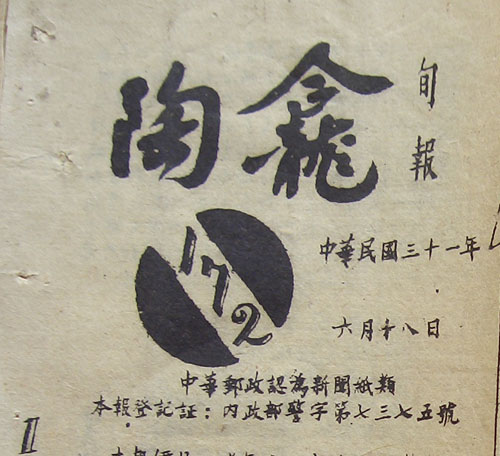 陶龕
旬報
172
中華民國三十一年
六月十八日
中華郵政認為新聞紙類
本報登記証：內政部警字第七三七五號